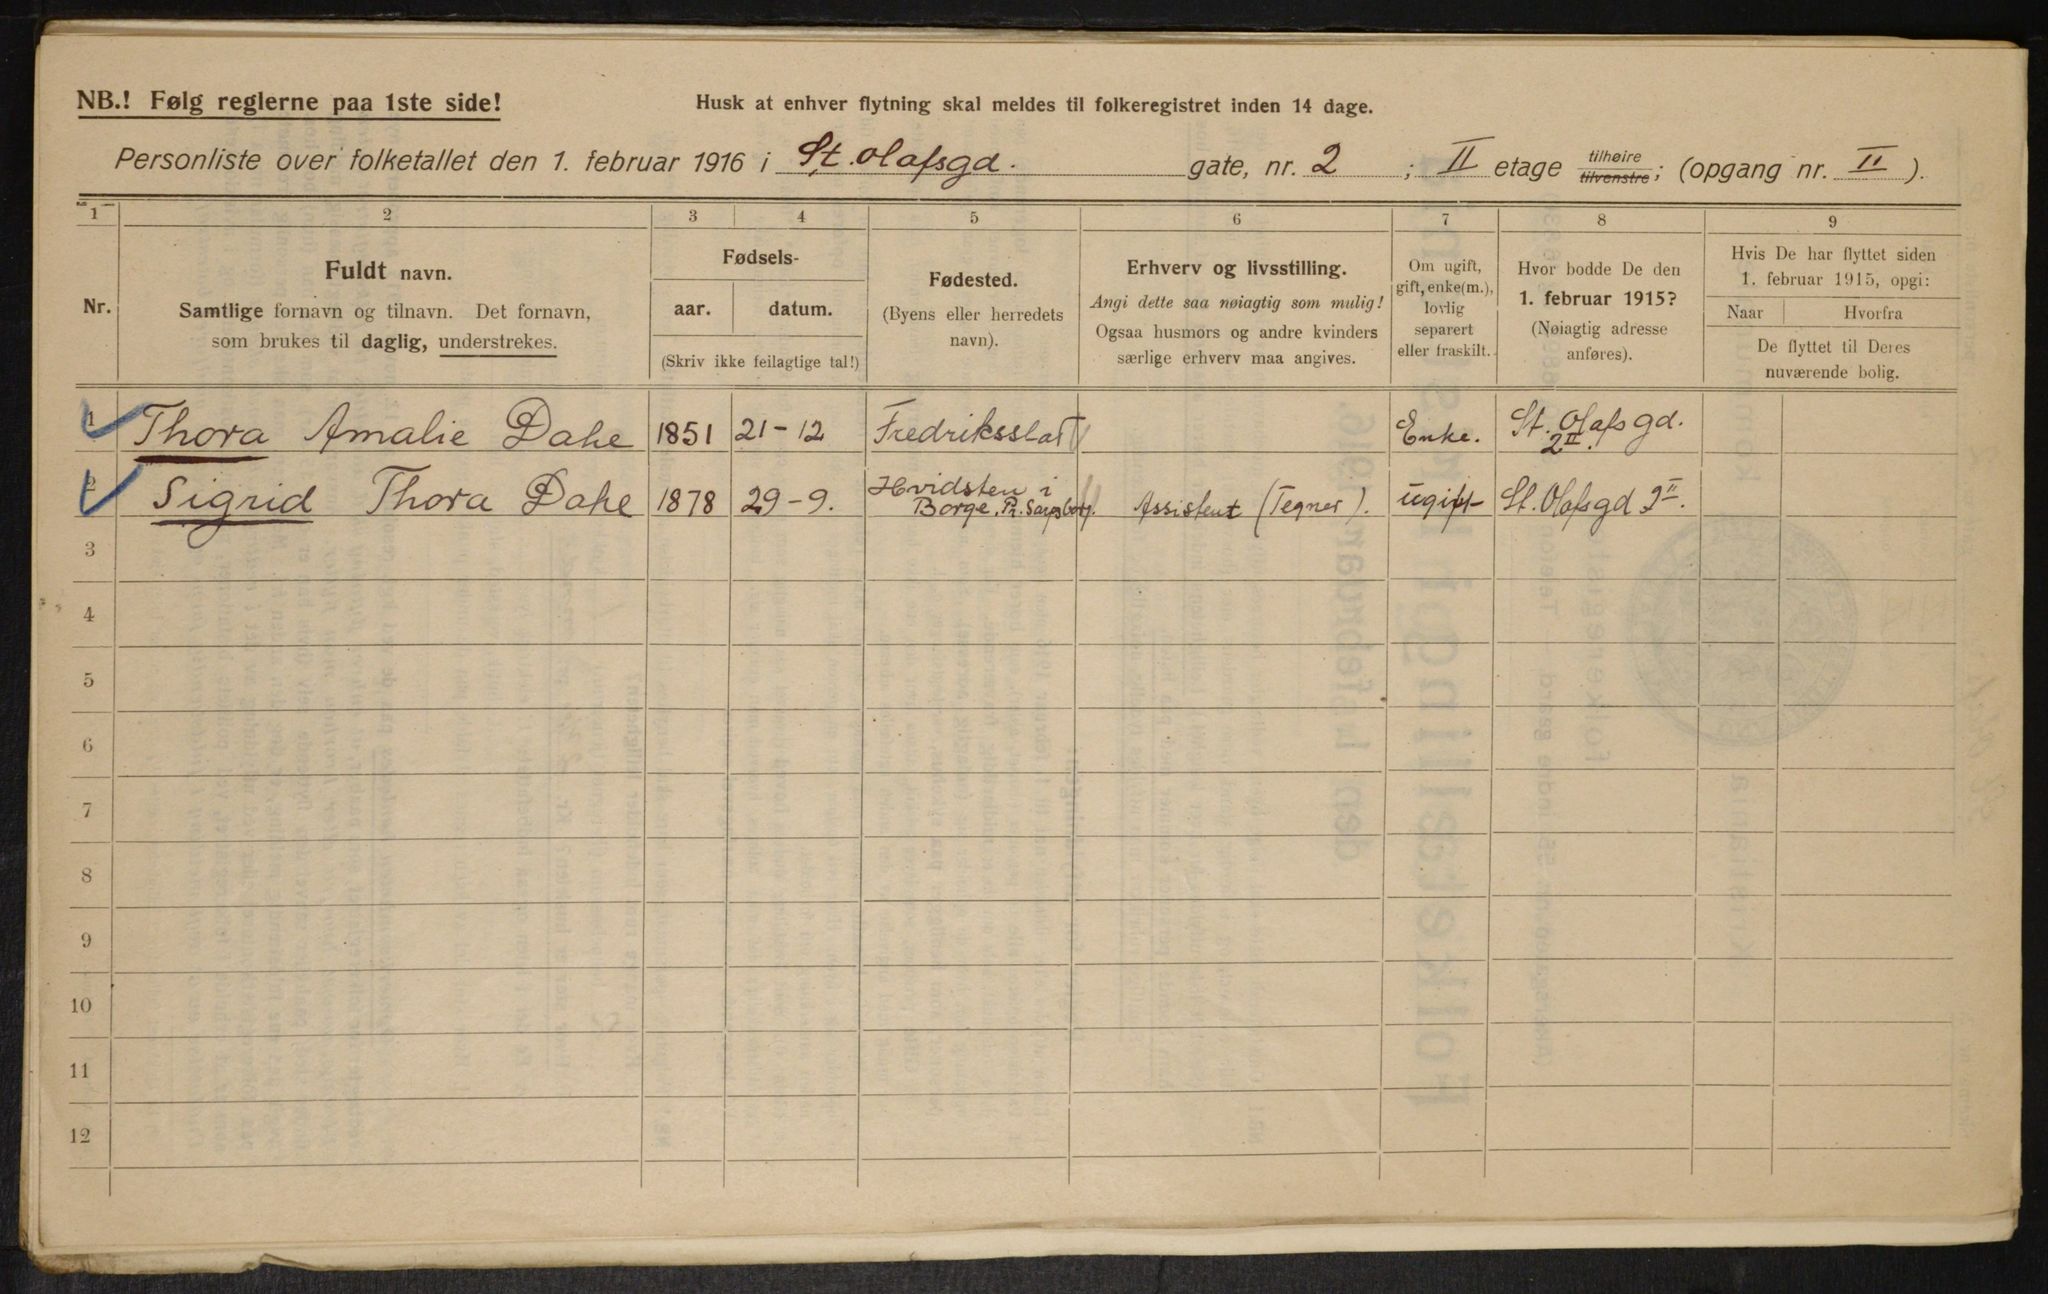 NB.! Følg reglerne paa 1ste side!
Husk at enhver flytning skal meldes til folkeregistret inden 14 dage.
Personliste over folketallet den 1. februar 1916 i St. Olafsgd. gate, nr. 2 ; II etage tilhøire tilvenstre; (opgang nr. II ).
1 2 3 4 5 6 7 8 9
Nr.
Fuldt navn.
Samtlige fornavn og tilnavn. Det fornavn,
som brukes til daglig, understrekes.
Fødsels-
aar. datum.
(Skriv ikke feilagtige tal!)
Fødested.
(Byens eller herredets
navn).
Erhverv og livsstilling.
Angi dette saa nøiagtig som mulig!
Ogsaa husmors og andre kvinders
særlige erhverv maa angives.
Om ugift,
gift, enke(m.),
lovlig
separert
eller fraskilt.
Hvor bodde De den
1. februar 1915?
(Nøiagtig adresse
anføres).
Hvis De har flyttet siden
1. februar 1915, opgi:
Naar Hvorfra
De flyttet til Deres
nuværende bolig.
1 Thora Amalie Dahe 1851 21-12 Fredriksstad Enke. St. Olafsgd.
2 II.
2 Sigrid Thora Dahe 1878 29-9. Hvidsten i
Borge, Pr. Sarpsborg. Assistent (Tegner). ugift St. Olafsgd 2 II.
3
4
5
6
7
8
9
10
11
12